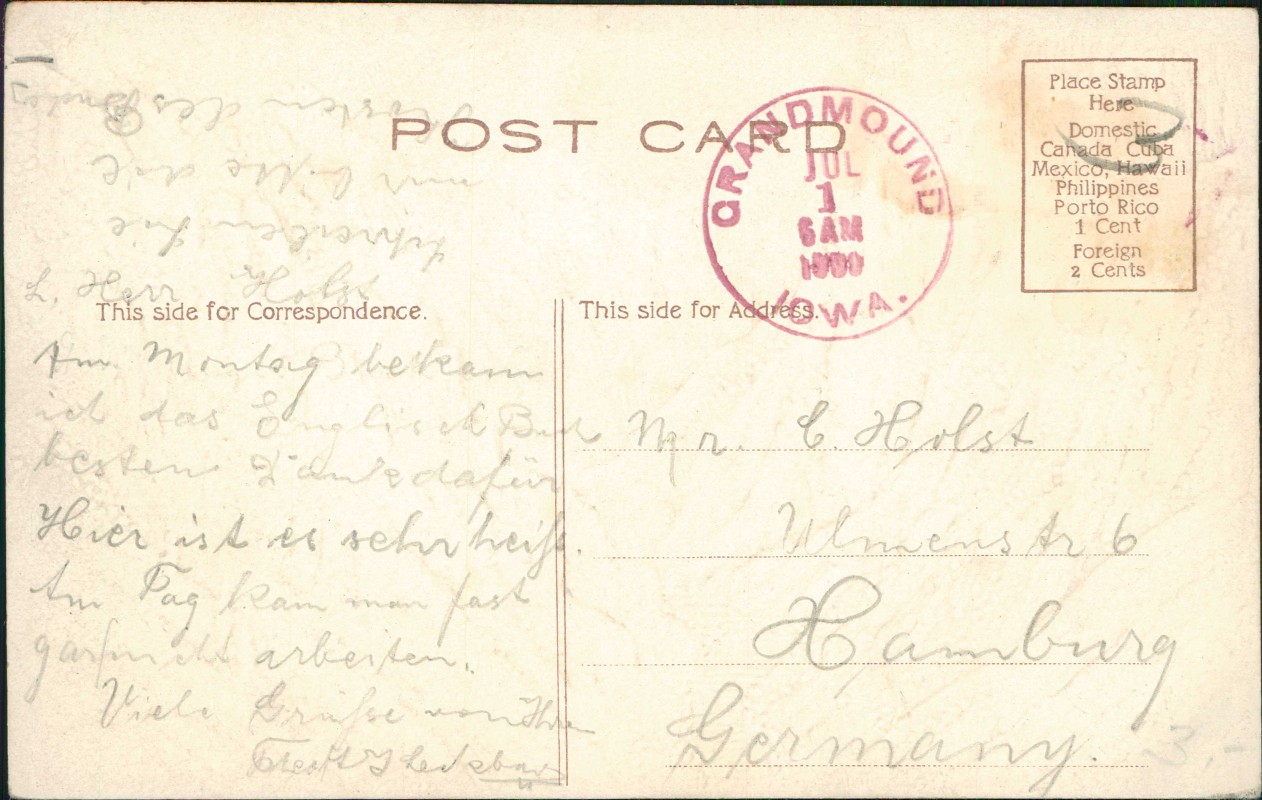 POST CARD
GRANDMOUND
JUL
1
6 AM
IOWA.
Place Stamp
Here
Domestic
Canada Cuba
Mexico, Hawaii
Philippines
Porto Rico
1 Cent
Foreign
2 Cents
This side for Correspondence.
This side for Address.
schreiben Sie
mir bitte die
Kosten des Buches
L. Herr Holst
Am Montag bekam
ich das Englisch Buch
besten Dank dafür
Hier ist es sehr heiß.
Am Tag kam man fast
garnicht arbeiten.
Viele Grüße von Ihrem
Mr. C. Holst
Ulmenstr 6
Hamburg
Germany.
3,-